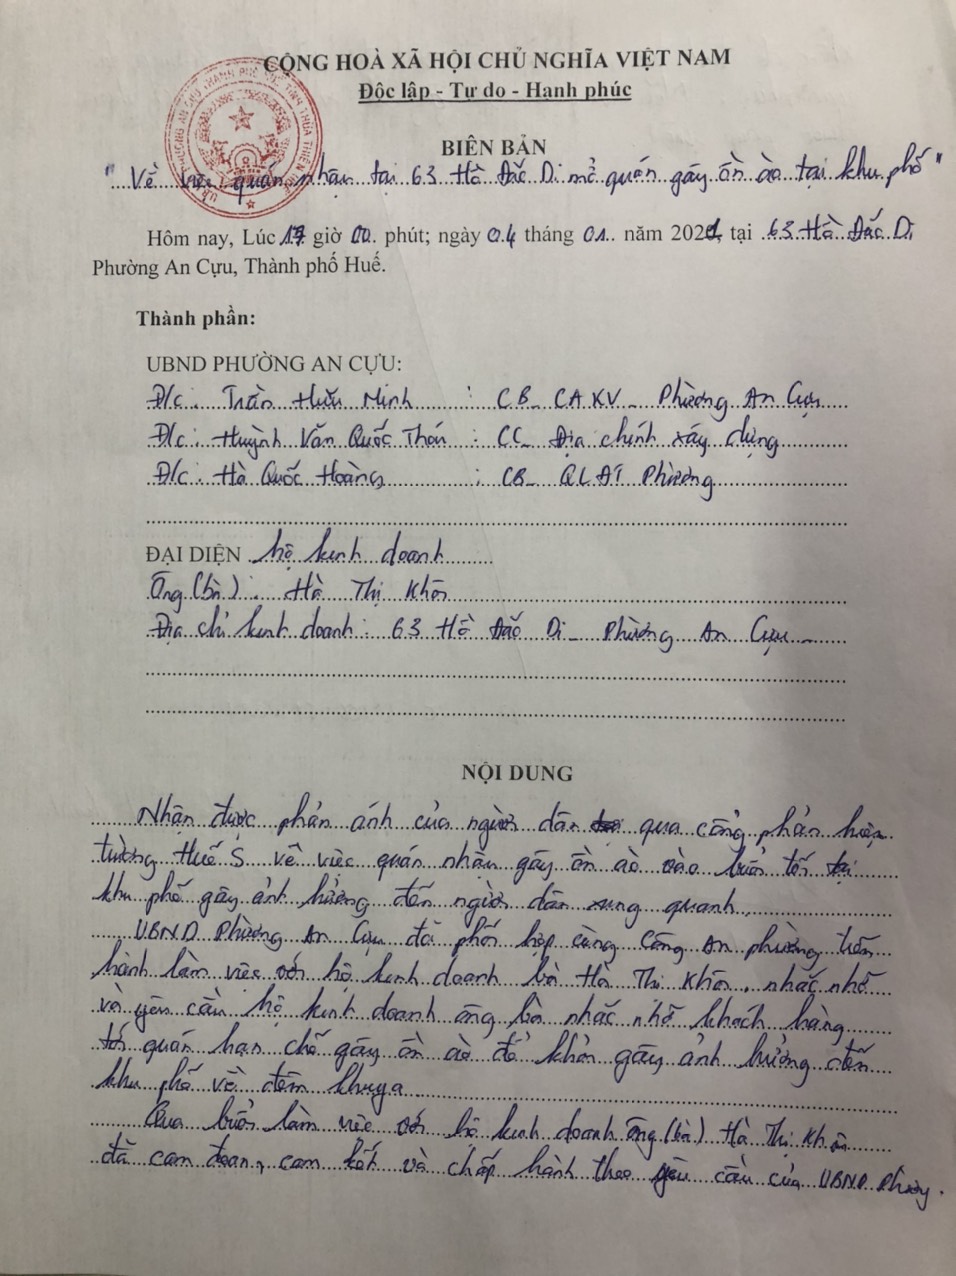 CỘNG HOÀ XÃ HỘI CHỦ NGHĨA VIỆT NAM
Độc lập - Tự do - Hạnh phúc
BIÊN BẢN
"Về việc quán nhậu tại 63 Hồ Đắc Di mở quán gây ồn ào tại khu phố"
Hôm nay, Lúc 17 giờ 00 phút; ngày 04 tháng 01 năm 2021, tại 63 Hồ Đắc Di
Phường An Cựu, Thành phố Huế.
Thành phần:
UBND PHƯỜNG AN CỰU:
Đ/c: Trần Hữu Minh : CB_ CAKV_ Phường An Cựu
Đ/c: Huỳnh Văn Quốc : CC_ Địa chính xây dựng
Đ/c: Hà Quốc Hoàng : CB_ QLĐT Phường
ĐẠI DIỆN hộ kinh doanh
Ông (bà): Hà Thị Khôn
Địa chỉ kinh doanh: 63 Hồ Đắc Di_ Phường An Cựu_
NỘI DUNG
Nhận được phản ánh của người dân qua cổng phản hiện
tường Huế S về việc quán nhậu gây ồn ào vào buổi tối tại
khu phố gây ảnh hưởng đến người dân xung quanh.
UBND Phường An Cựu đã phối hợp cùng Công An phường tiến
hành làm việc với hộ kinh doanh bà Hà Thị Khôn, nhắc nhở
và yêu cầu hộ kinh doanh ông bà nhắc nhở khách hàng
tới quán hạn chế gây ồn ào để khỏi gây ảnh hưởng đến
khu phố về đêm khuya
Qua buổi làm việc với hộ kinh doanh Ông (bà) Hà Thị Khôn
đã cam đoan, cam kết và chấp hành theo yêu cầu của UBND Phường.